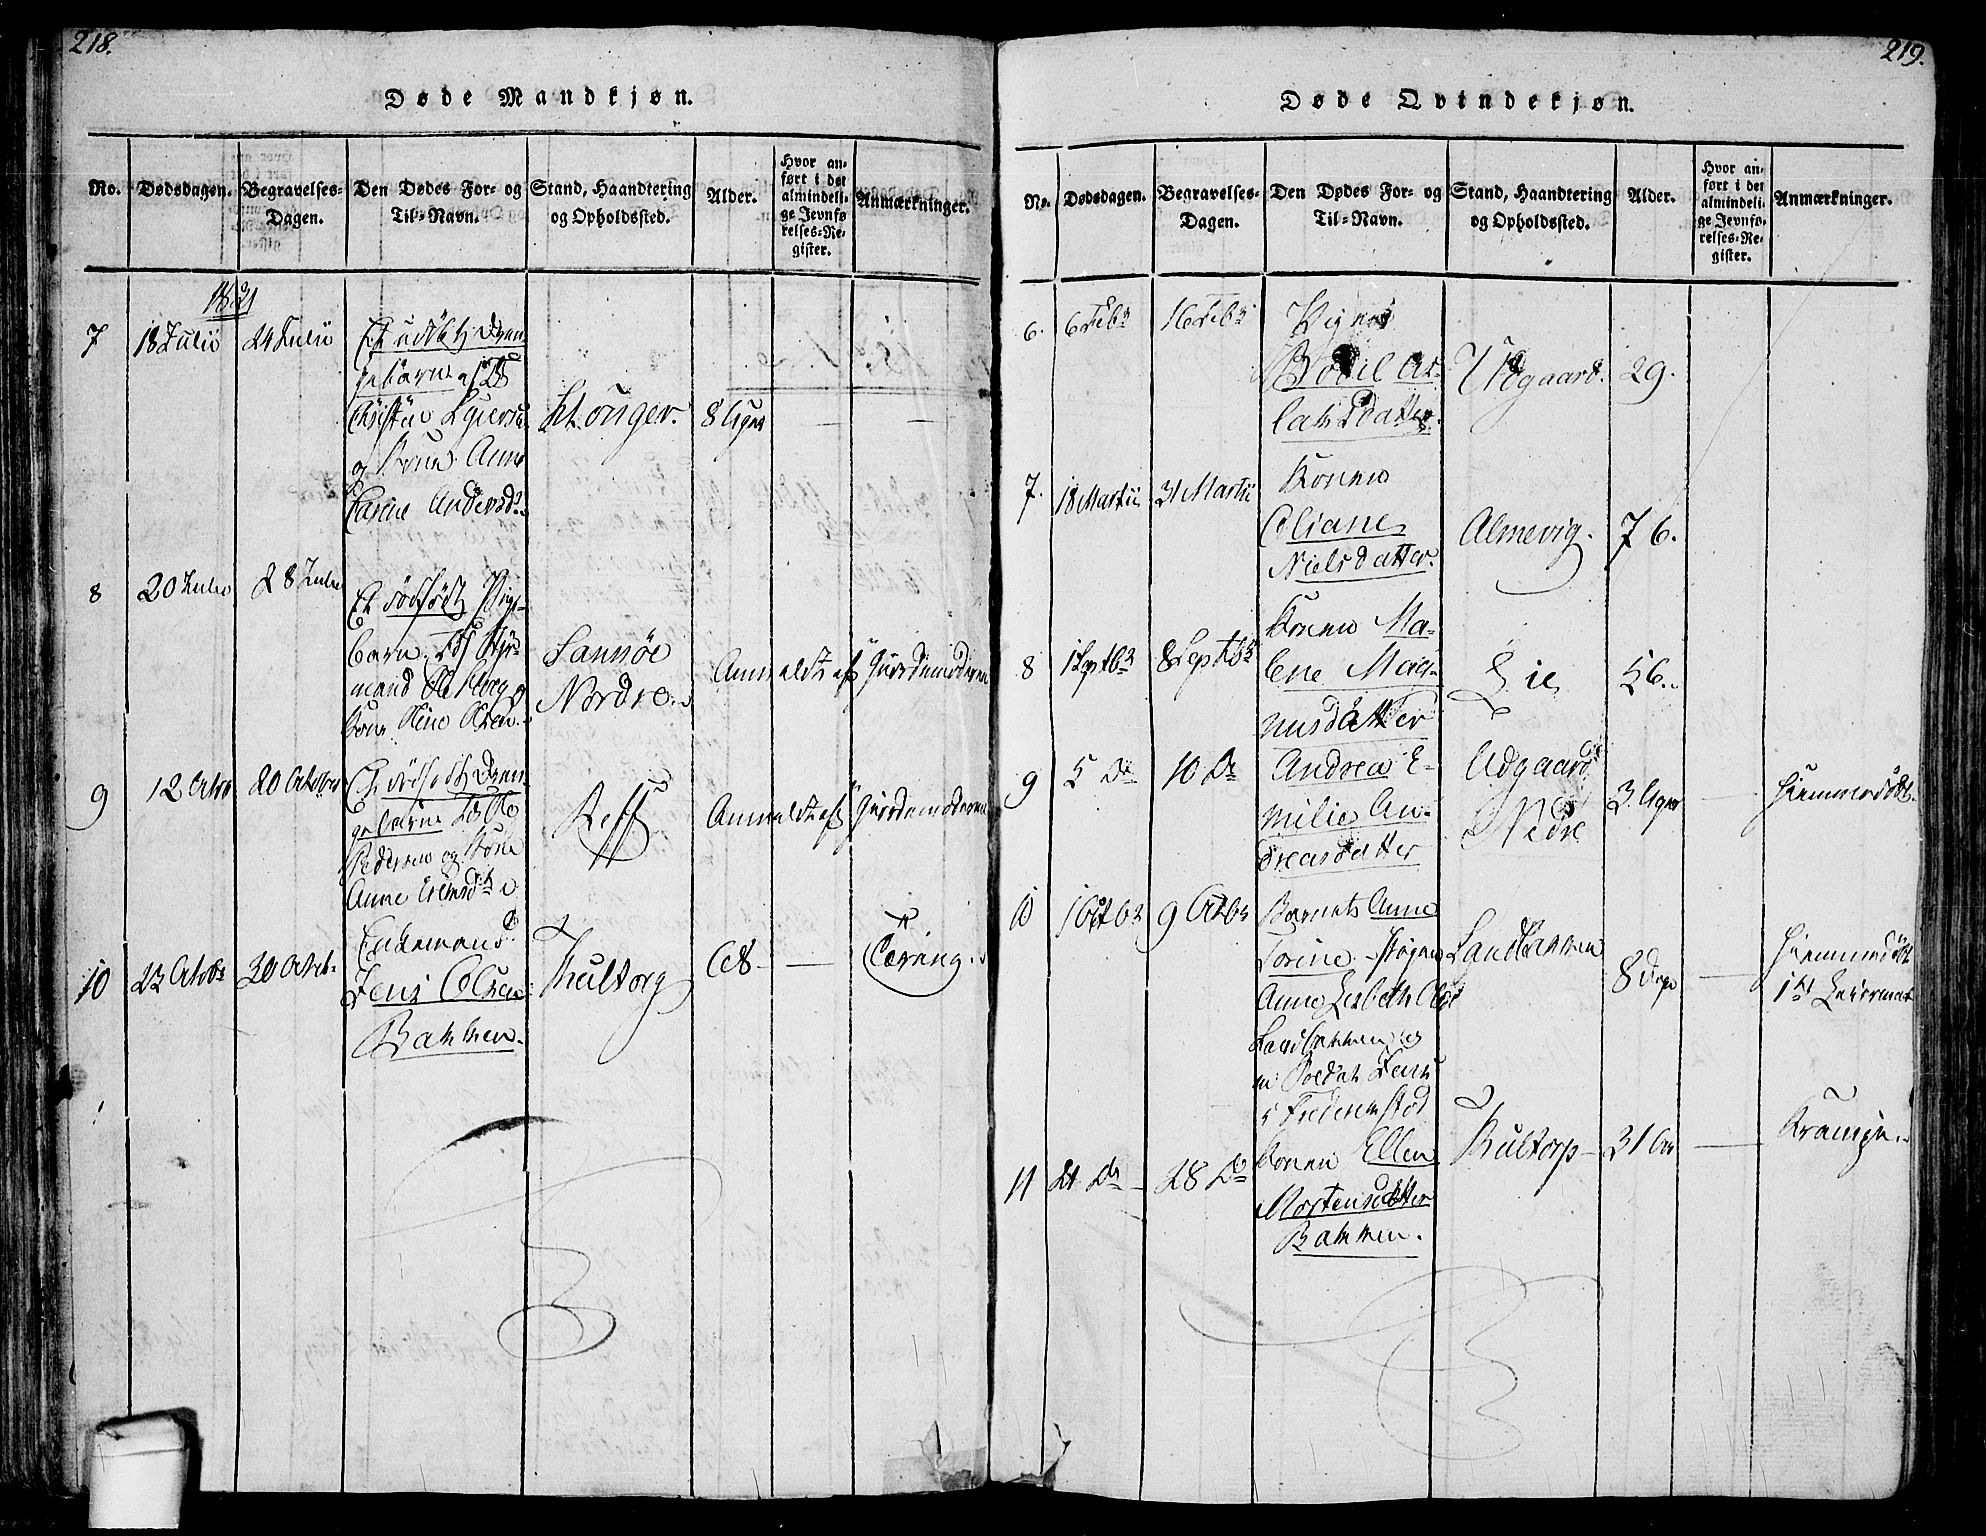 218.
Døde Mandkjøn.
No.
Dødsdagen.
Begravelses-
Dagen.
Den Dødes For- og
Til-Navn.
Stand, Haandtering
og Opholdssted.
Alder.
Hvor an-
ført i det
almindeli-
ge Jevnfø
relses-Re-
gister.
Anmærkninger.
1821
7
18 Julii
24 Julii
Et udøbt Dren
gebarn af
Christen
og Kone Anne
Carine Andersd:
8 Uger
8
20 Julii
28 Julii
Et dødfødt Pige-
barn.
mand Ole
Kone
Sannøe
Nordre.
Anmeldt af Giordemoderen
9
12 Octbr
20 October
Et dødfødt Dren
gebarn
Pedersen og Kone
Anne
Reff
Anmeldt af Giordemoderen
10
23 Octobr
30 Octbr
Enkemand
Jens Olsen
Bakken.
68
Tæring.
219.
Døde Qvindekjøn.
No.
Dødsdagen.
Begravelses-
Dagen.
Den Dødes For- og
Til-Navn.
Stand, Haandtering
og Opholdssted.
Alder.
Hvor an-
ført i det
almindeli-
ge Jevnfø-
relses-Re-
gister.
Anmærkninger.
6.
6 Febr
16 Febr
Pigen
Bodil As-
laksdatter.
Udgaard.
29.
7.
18 Martii
31 Martii
Konen
Oliane
Nielsdatter.
Almevig.
76.
8
1 Septbr
8 Septbr
Konen Ma-
lene Mag-
nusdatter
Lie
56.
9
5 Do
10 Do
Andrea E-
milie An-
dreasdatter
Udgaard
Nedre
3 Uger
Hiemmedøbt.
10
1 Octbr
9 Octbr
Barnet Anne
Torine - Pigen
Anne Lisbeth
Landbakken og
Soldat Jens
Frederikstad
Landbakken
8 Dage
Hiemmedøbt
1st Leiermaal
11
21 Do
28 Do
Konen Ellen
Mortensdatter
Bakken.
Bultorp
31
Krampe.